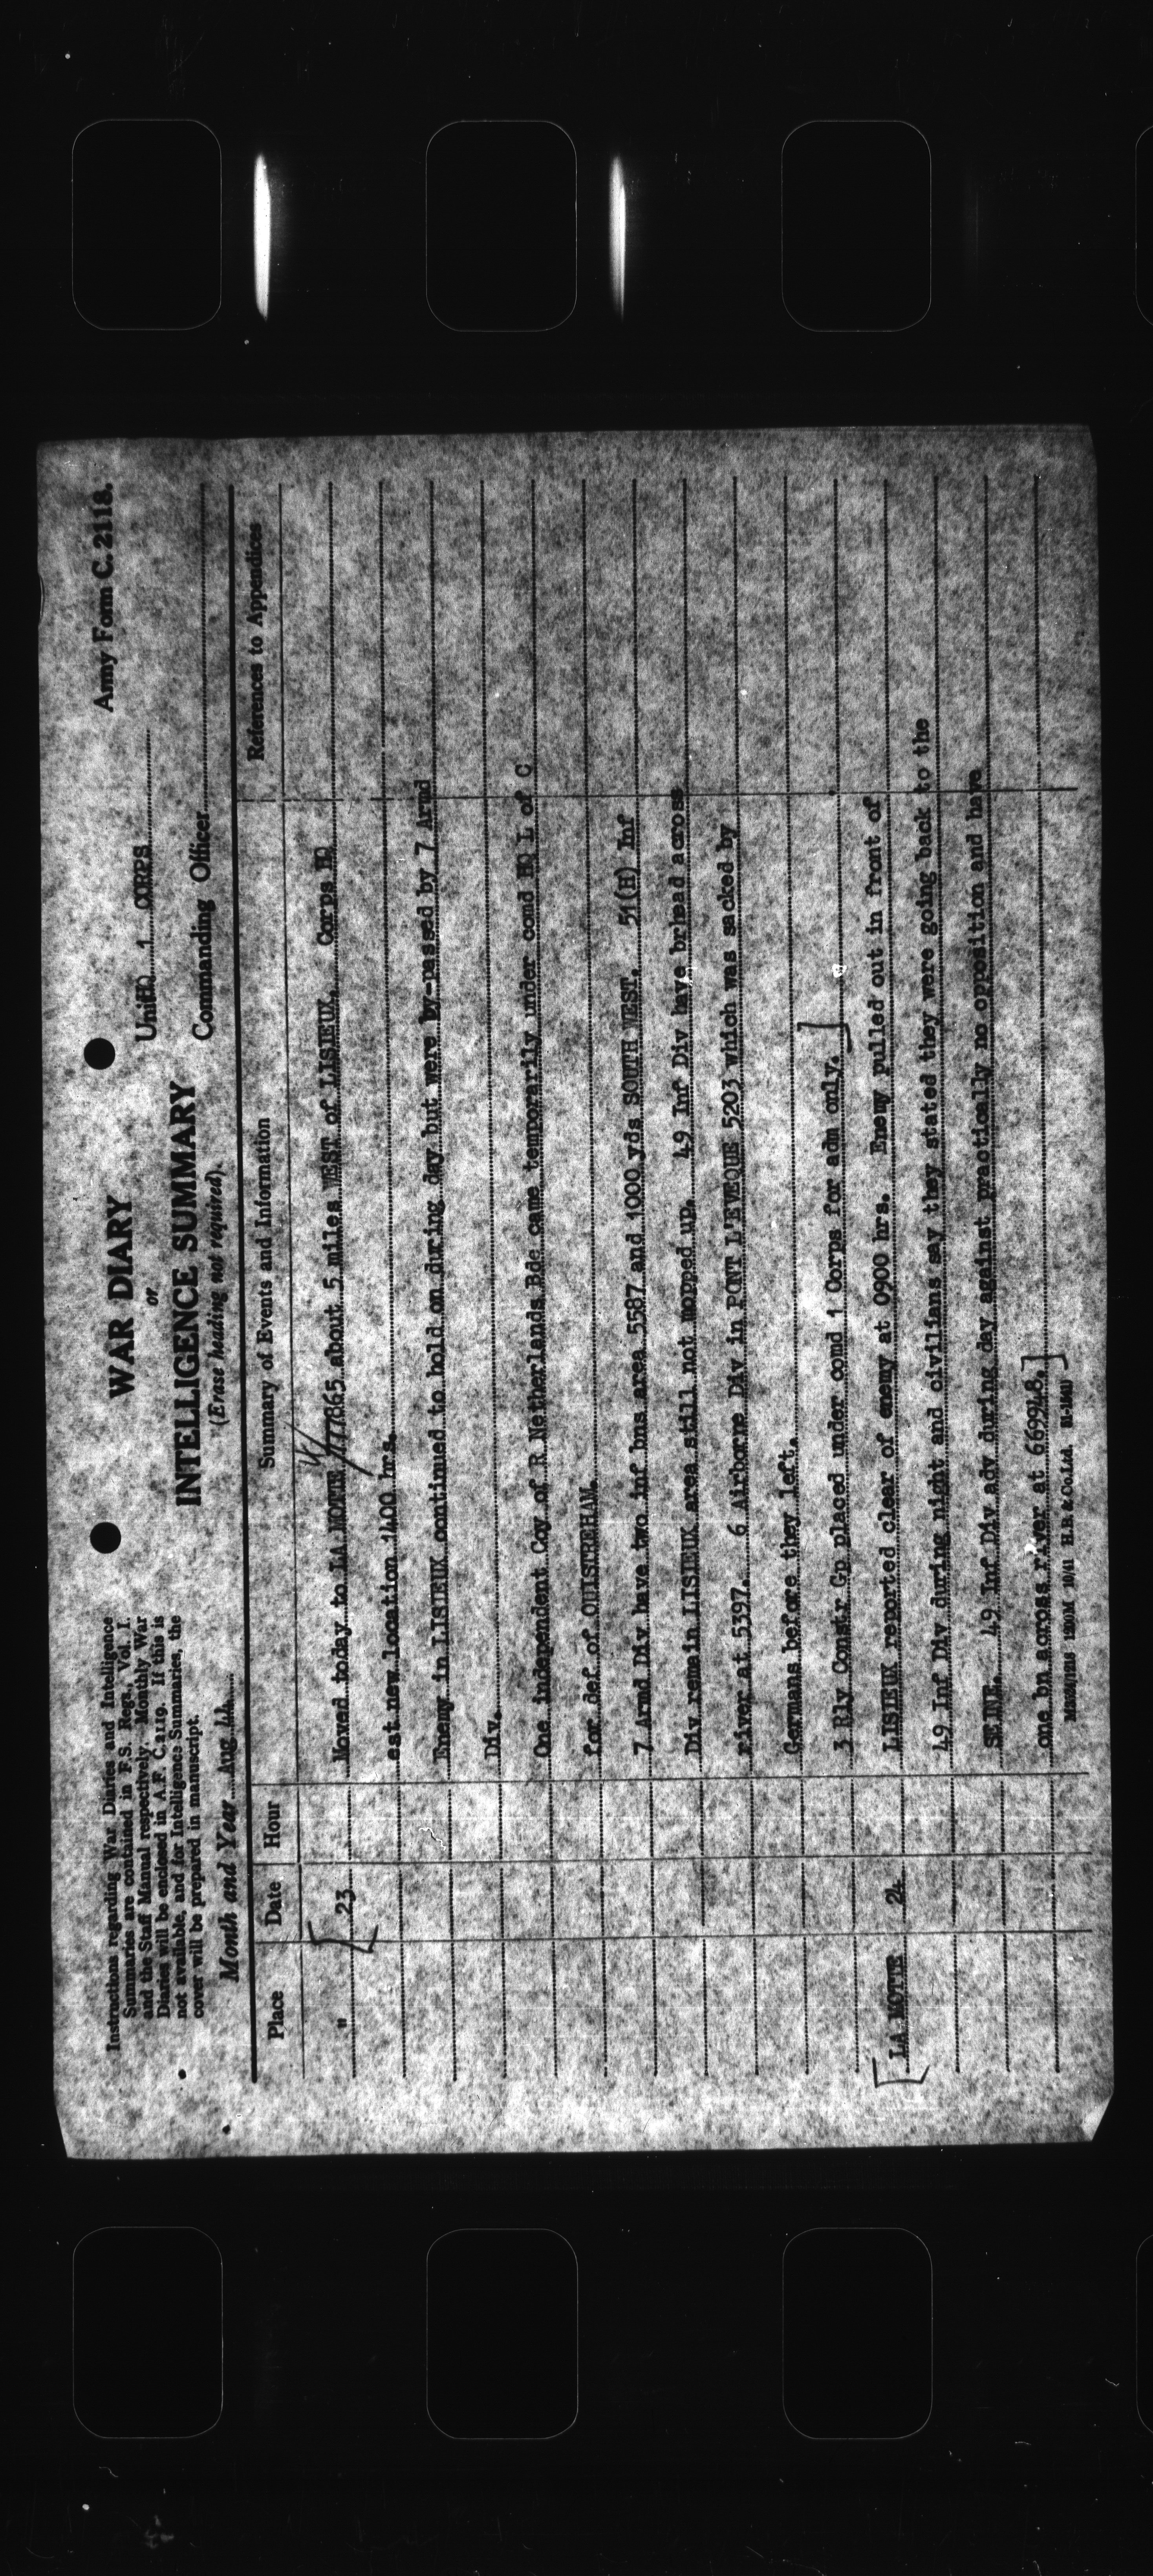 Army Form C. 2118.
WAR DIARY
or
INTELLIGENCE SUMMARY
(Erase heading not required).
Instructions regarding War Diaries and Intelligence
Summaries are contained in F.S. Regs., Vol. I.
and the Staff Manual respectively. Monthly War
Diaries will be enclosed in A.F. C.2119. If this is
not available, and for Intelligence Summaries, the
cover will be prepared in manuscript.
Month and Year Aug 44
Unit HQ 1 CORPS
Commanding Officer
Place Date Hour Summary of Events and Information References to Appendices
" 23 Moved today to LA MOTTE 177865 about 5 miles WEST of LISIEUX. Corps HQ
est new location 1400 hrs.
Enemy in LISIEUX continued to hold on during day but were by-passed by 7 Armd
Div.
One independent Coy of R Netherlands Bde came temporarily under comd HQ L of C
for def of OUISTREHAM.
7 Armd Div have two inf bns area 5587 and 1000 yds SOUTH WEST. 51(H) Inf
Div remain LISIEUX area still not mopped up. 49 Inf Div have brhead across
river at 5397. 6 Airborne Div in PONT L'EVEQUE 5203 which was sacked by
Germans before they left.
3 Rly Constr Gp placed under comd 1 Corps for adm only.
LA MOTTE 24 LISIEUX reported clear of enemy at 0900 hrs. Enemy pulled out in front of
49 Inf Div during night and civilians say they stated they were going back to the
SEINE. 49 Inf Div adv during day against practically no opposition and have
one bn across river at 669948.
1200M 10/41 H.B. & Co.Ltd.